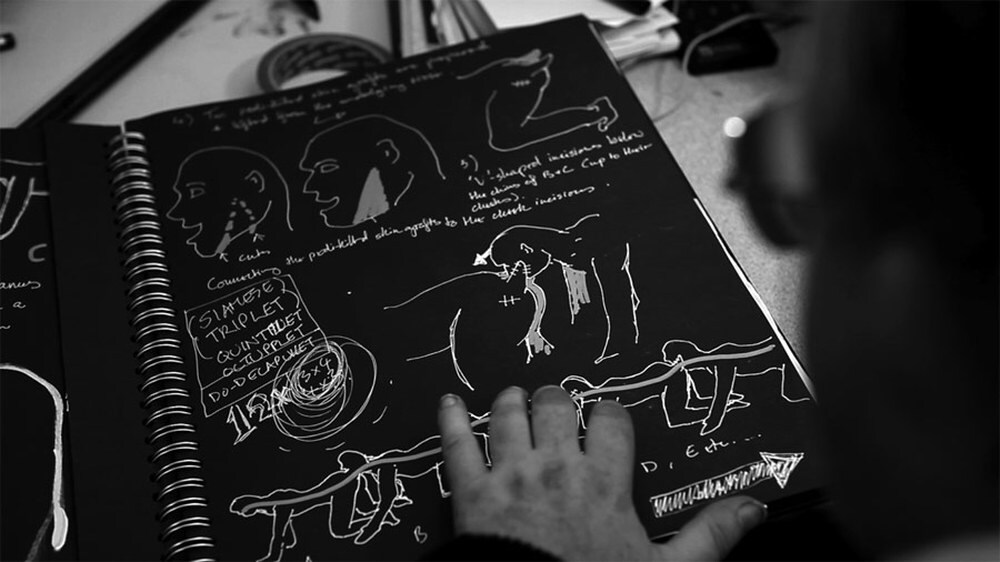 4) The pedicilled skin grafts are prepared
& lifted from the underlying
cuts
3)
'V'-shaped incisions below
the chins of B+C (up to their
cheeks).
Connecting the pedicilled skin grafts to the cheek incisions.
SIAMESE
TRIPLET
QUINTUPLET
OCTUPPLET
DO-DECAPULET
12
3x4
C
anus
a
A
B
D, E etc...